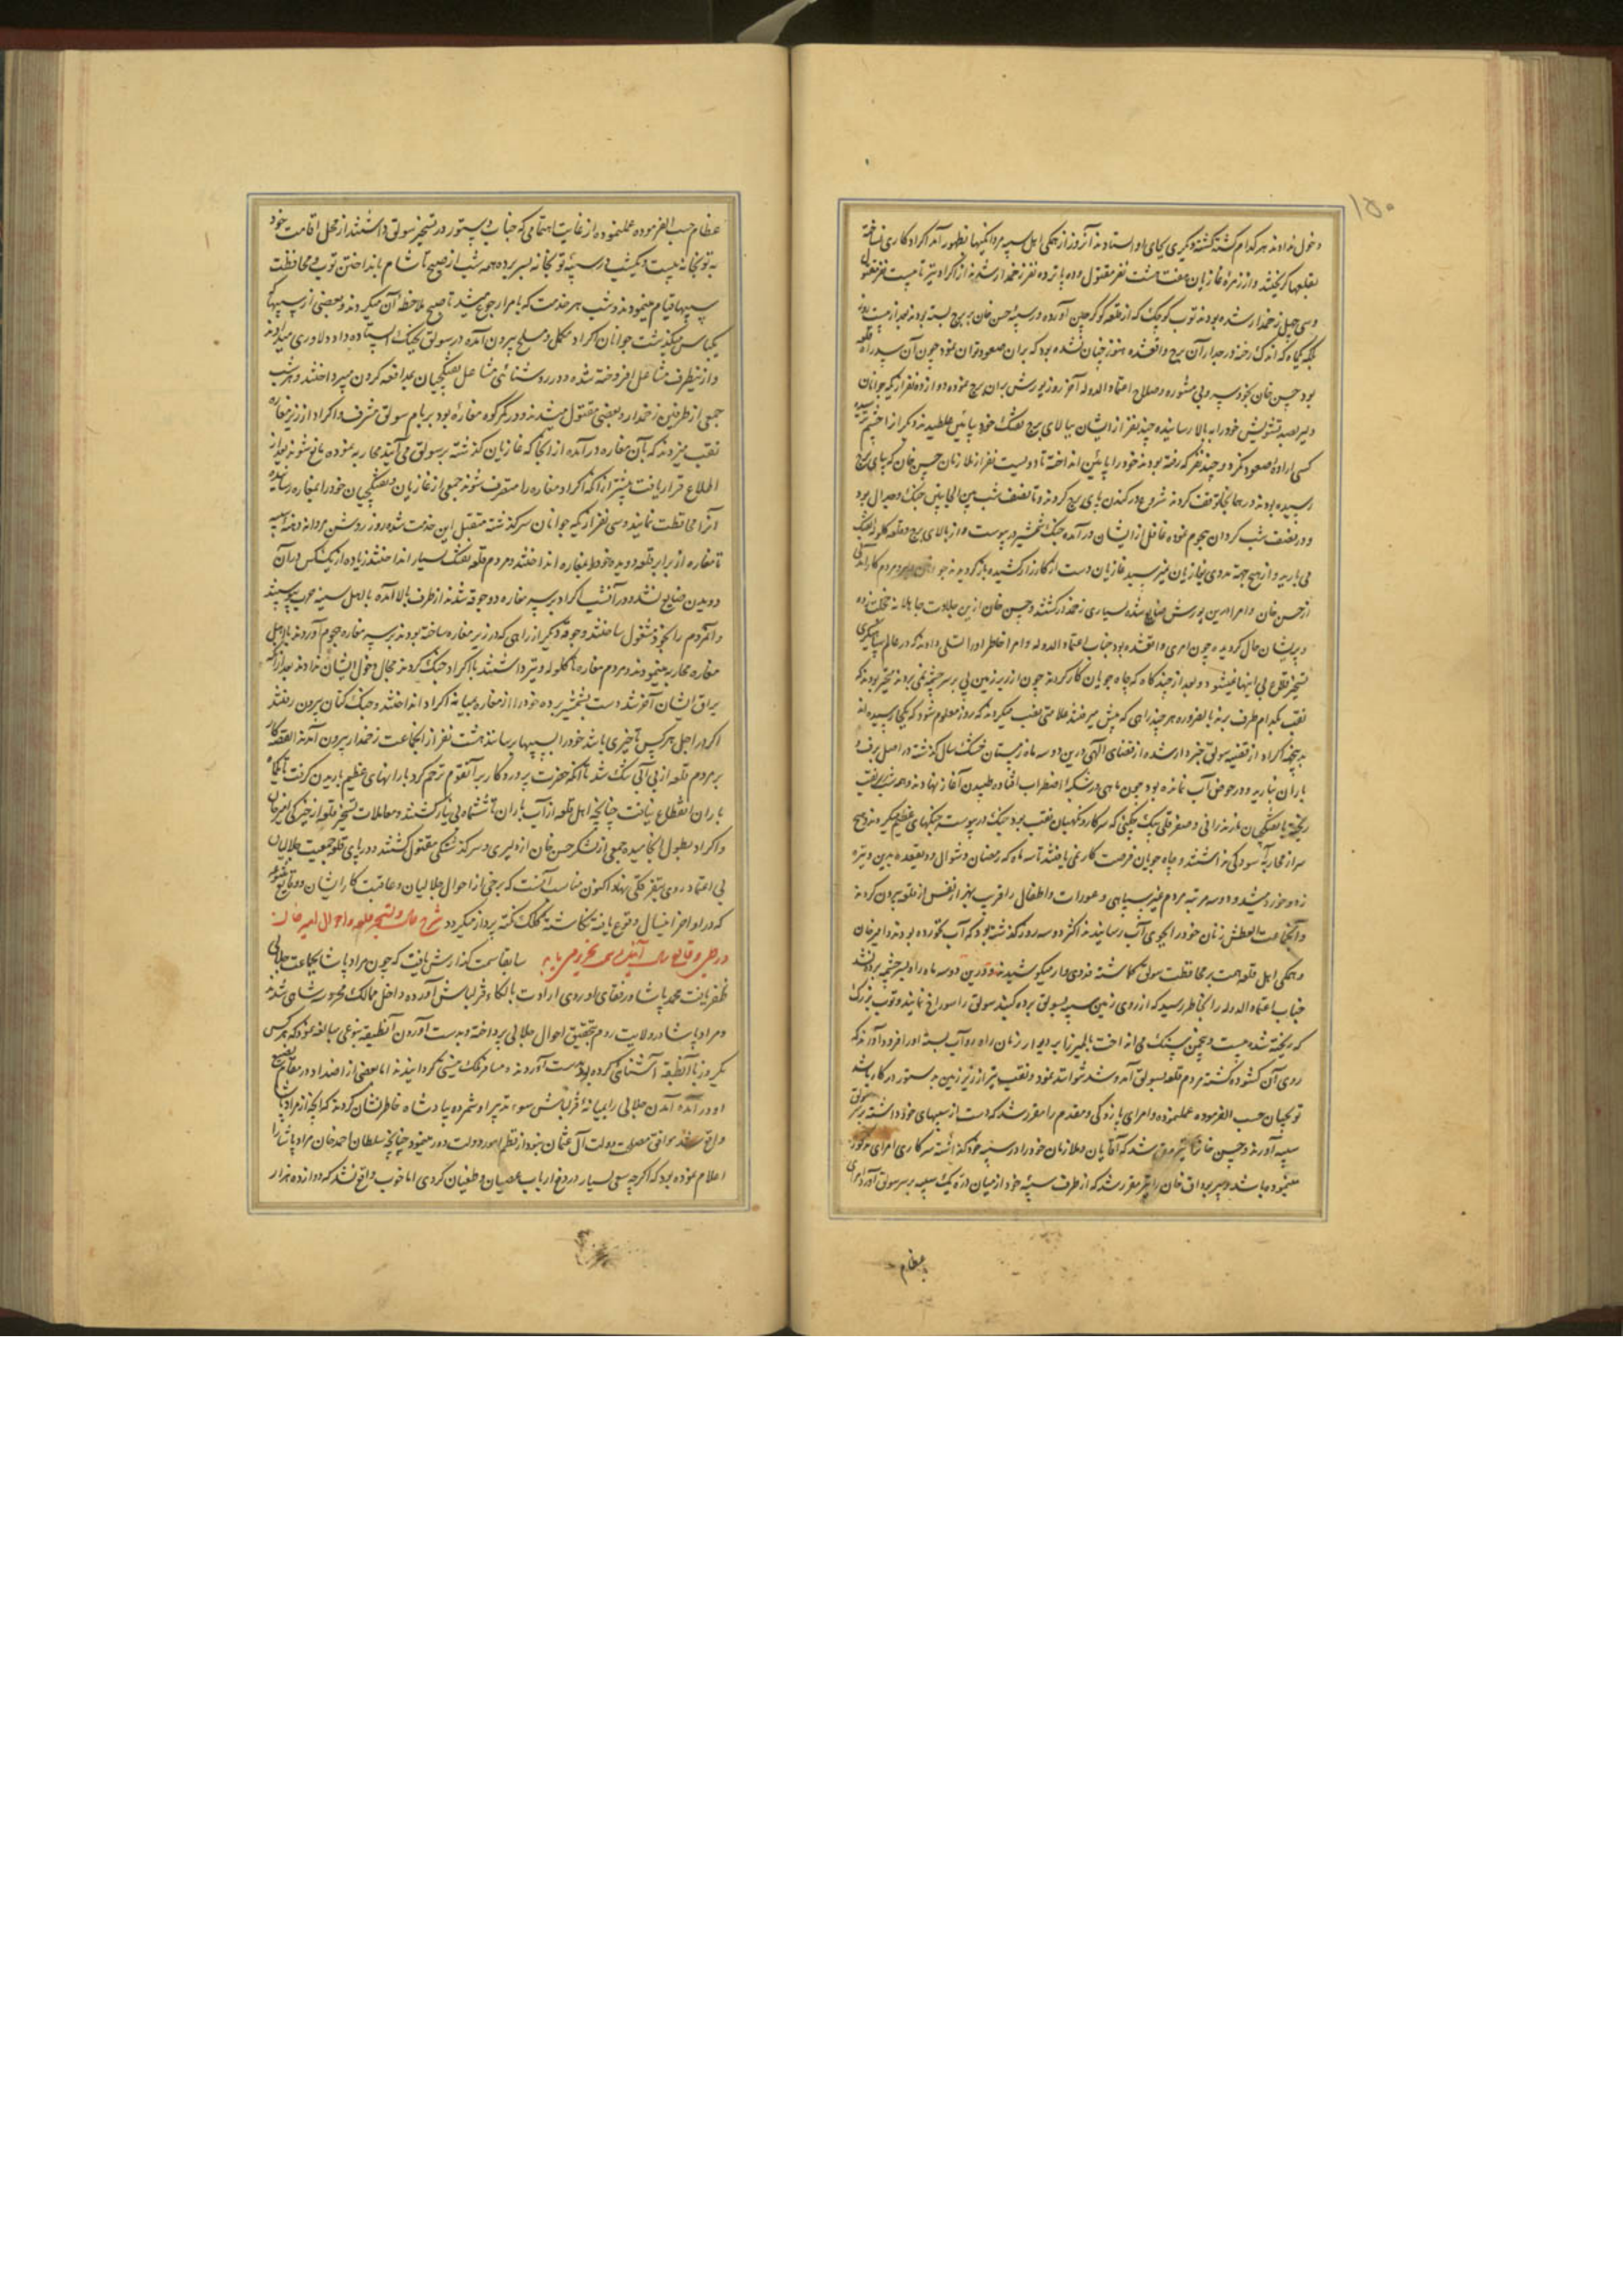 ۱۵۰
دخول ندادند هر کدام کشته کشته دیگری بجای او استاد نه آنروز از همکی اهل سیبه مردانکیها بظهور آمد اکراد کاری نساخته
بقلعها کریختند و از زمرهٔ غازیان هفت هشت نفر مقتول و ده پانزده نفر زخمدار شدند از اکراد نیز تا بیست نفر مقتول
و سی چهل زخمدار شده بودند توب کوچک که از قلعه کوکرچلن آورده در سیبهٔ حسن خان بر برج بسته بودند بعد از بیست روز
بلکه یکماه که اندک رخنه در جدار آن برج واقعشده هنوز چنان نشده بود که بران صعود توان نمود چون آن سیبه در راه قلعه
بود حسن خان بخود سر و بی مشوره و صلاح اعتماد الدوله آخر روز یورش بران برج نموده دوازده نفر از یکه جوانان
دلیر بصد تشویش خود را به بالا رسانیده چند نفر از ایشان ببالای برج تفنک خورد پائین غلطیدند دیکر از
کسی اراده صعود نکرد و چند نفر که رفته بودند خود را پائین انداخته تا دویست نفر از ملازمان حسن خان که بپای برج
رسیده بودند در همانجا توقف کردند شروع در کندن پای برج کردند و تا نصف شب من الجانبین جنک و جدال بود
و در نصف شب کردان هجوم نموده غافل از ایشان در آمده جنک شمشیر در پیوست و از بالای برج و قلعه کلوله تفنک
می بارید و از هیچ جهة مددی بغازیان نمیرسید غازیان دست از کارزار کشیده باز کردیدند جوانان و مردم کارآمدنی
از حسن خان و امرا درین یورش ضایع شدند بسیاری زخمدار کشتند و حسن خان ازین جلادت جاهلانه خجلت زده
و پریشان حال کردید چون امری واقعشده بود جناب اعتماد الدوله و امرا خاطر او را تسلی دادند که در عالم سپاهیکری
تسخیر قلاع بی اینها نمیشود و بعد از چند کاه که چاه جویان کار کردند چون از زیر زمین پی بر سر چشمه نمی بردند متحیر بودند که
نقب بکدام طرف برند بالضروره هر چند راهی که پیش میرفتند علامتی نصب میکردند که روز معلوم شود که بکجا رسیده اند
بد بخت اکراد از قضیه سولق خبردار شده از قضای الهی درین دو سه ماه زمستان خشک سال کذشته در اصل برف و
باران نبارید و در حوض آب نمانده بود چون ماهی در شبکه اضطراب افتاده طپیدن آغاز نهادند و همه شب بر نقب
ریخته با تفنکچیان مازندرانی و صفرقلی بیک چکنی که سرکار و نکهبان نقب بود جنک در پیوست جنکهای عظیم میکردند و هیچ
سر از محاربه آسودکی نداشتند و چاه جویان فرصت کار نمی یافتند تا سه ماه که رمضان و شوال و ذیقعده بدین وتیره
زد و خورد میشد و دو سه مرتبه مردم غیر سپاهی و عورات و اطفال را قریب بهزار نفس از قلعه بیرون کردند
و آنجماعت العطش زنان خود را بجوی آب رسانیدند اکثر دو سه روز کذشته بود که آب نخورده بودند و امیر خان
و همکی اهل قلعه همت بر محافظت سولق کماشته فدوی وار میکوشیدند و درین دو سه ماه راه بسر چشمه بردند
جناب اعتماد الدوله را بخاطر رسید که از روی زمین سیبه بسولق برده کنبد سولق را سوراخ نمایند و توب بزرک
که ریخته شده بیست و پنجمن سنک می انداخت بالمیرزا بدیوار زنان راه رود آب بسته او را فرود آورند که
روی آن کشوده کشته مردم قلعه بسولق آمد و شد نتوانند نمود و نقب نیز از زیر زمین بدستور در کار باشد
توبچیان حسب الفرموده عملنموده و امرای پازوکی و مقدم را مقرر شد که دست از سیبهای خود داشته بر سر سولق
سیبه آورند و حسین خان نیز مرخص شد که آقایان و ملازمان خود را در سیبه خود کذاشته سرکاری امرای مذکور
مینموده باشد و پیر بوداق خان را نیز مقرر شد که از طرف سیبهٔ خود از میان دره یک سیبه بر سر سولق آورد امرای
عظام
عظام حسب الفرموده عملنموده از غایت اهتمامی که جناب وستور در تسخیر سولق داشتند از محل اقامت خود
به توبخانه بیست و یکشب در سیبهٔ توبخانه بسر برده همه شب از صبح تا شام بانداختن توب و محافظت
سیبها قیام مینمودند و شب هر خدمت که بامرا رجوع میشد تا صبح ملاحظهٔ آن میکردند و بعضی از سیبها که
یکپاس میکذشت جوانان اکراد مکمل و مسلح بیرون آمده در سولق بجنک استاده داد دلاوری میدادند
و از نیطرف مشاعل افروخته شده در روشنائی مشاعل تفنکچیان بمدافعه کردن میپرداختند و هر شب
جمعی از طرفین زخمدار و بعضی مقتول میشدند و در کمرکوه مغاره بود بر بام سولق مشرف و اکراد از زیر مغاره
نقب میزدند که بآن مغاره در آمده از آنجا که غازیان کذشته بر سولق می آیند محاربه نموده مانع شوند بعد از
اطلاع قرار یافت پیشتر از آنکه اکراد مغاره را متصرف شوند جمعی از غازیان و تفنکچیان خود را بمغاره رسانیده
آنرا محافظت نمایند و سی نفر از یکه جوانان سر کذشته متقبل این خدمت شده روز روشن مردانه وار
تا مغاره از برابر قلعه دویده خود را بمغاره انداختند و مردم قلعه تفنک بسیار انداختند زیاده از یک کس در آن
دویدن ضایع نشد و در آنشب اکراد بر سر مغاره دو جوقه شدند از طرف بالا آمده با اهل سیبه محرب پیوستند
و آنمردم را بخود مشغول ساختند و جوقه دیکر از راهی که در زیر مغاره ساخته بودند بر سر مغاره هجوم آوردند با اهل
مغاره محاربه مینمودند و مردم مغاره تا کلوله و تیر داشتند با اکراد جنک کردند مجال دخول ایشان ندادند بعد از آنکه
یراق ایشان آخر شد دست بشمشیر برده خود را از مغاره بمیانهٔ اکراد انداختند و جنک کنان بیرون رفتند
اکر در اجل هر کس تاخیری باشد خود را بسیبها رسانند هشت نفر از آنجماعت زخمدار بیرون آمدند القصه کار
بر مردم قلعه از بی آبی تنک شد تا آنکه حضرت پروردکار بر آنقوم ترحم کرد بارانهای عظیم باریدن کرفت تا یکماه
باران انقطاع نیافت چنانچه اهل قلعه از آب باران تا ششماه بی نیاز کشتند و معاملات تسخیر قلعه از خیرکی امیرخان
و اکراد بطول انجامیده جمعی از لشکر حسن خان از دلیری و سر کذشتکی مقتول کشتند و در پای قلعه جمعیت جلالیان
بی اعتماد روی بتفرقکی نهاد اکنون مناسب آنست که برخی از احوال جلالیان و عاقبت کار ایشان و وقایع
که در اواخر اینسال وقوع یافته نکاشتهٔ کلک نکته پرداز میکردد شرح حال و تسخیر قلعه و احوال امیر خان
در طی وقایع سال آینده تحریر می یابد سابقا سمت کذارش یافت که چون مراد پاشا بجماعت جلالی
ظفر یافت محمد پاشا و رفقای او روی ارادت بالکاء قزلباش آورده داخل ممالک محروسه شاهی شدند
و مراد پاشا در ولایت روم بتحقیق احوال جلالی پرداخته و بدست آوردن آنطبقه بنوعی مبالغه نمود که هر کس
یکروز با آنطبقه آشنائی کرده بود بدست آوردند و مسافر ملک نیستی کردانیدند اما بعضی از اضداد در مقام تقبیح
او در آمده آمدن جلالی را بمیانهٔ قزلباش سوء تدبیر او شمرده بپادشاه خاطر نشان کردند که آنچه از مراد پاشا
واقع شد موافق مصلحت دولت آل عثمان نبود از نظم امور دولت دور مینمود چنانچه سلطان احمد خان مراد پاشا را
اعلام نموده بود که اکر چه سعی بسیار در دفع ارباب عصیان و طغیان کردی اما خوب واقع نشد که دوازده هزار